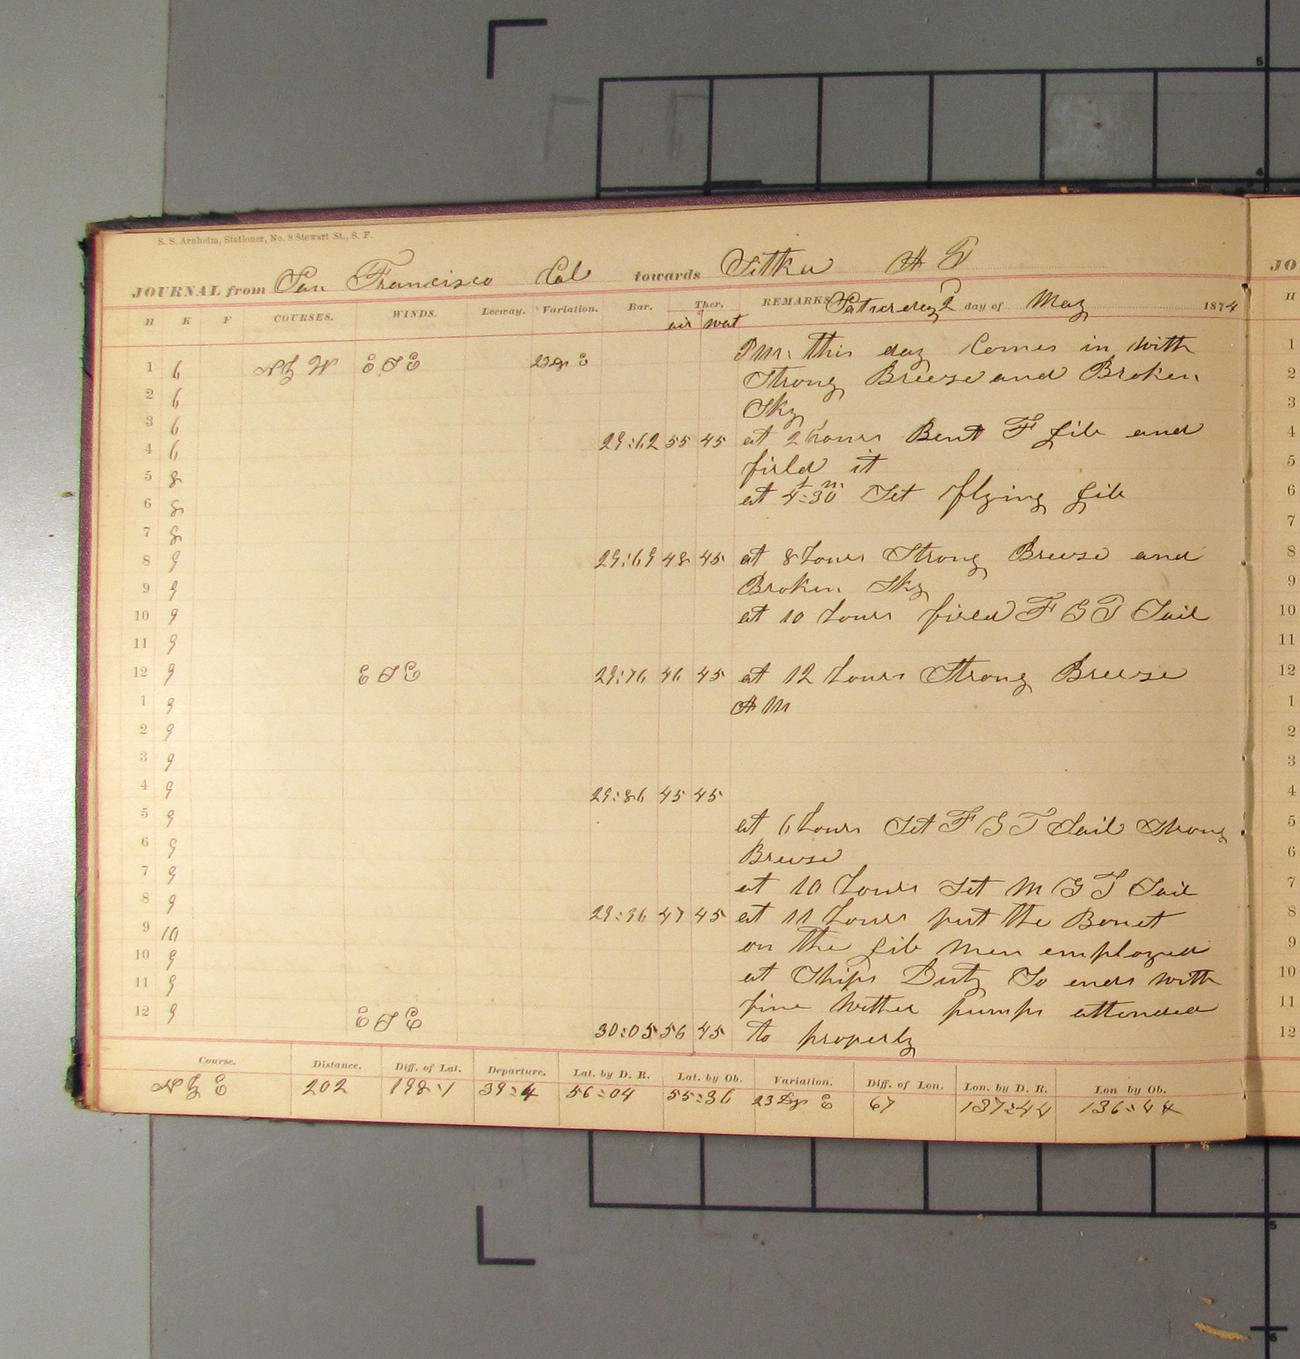 S. S. Arnheim, Stationer, No. 8 Stewart St., S. F.
JOURNAL from San Francisco Cal towards Sitka A T
H K F COURSES. WINDS. Leeway. Variation. Bar. Ther. REMARKS Saturday 2 day of May 1874
air wat
P M. this day Comes in with
1 6 N b W E S E 23 dg E
Strong Breese and Broken
2 6
Sky
3 6
4 6 29:62 55 45 at 2 hours Bent F Jib and
5 8 firld it
6 8 at 4h:30m Set flying Jib
7 8
8 9 29:69 48 45 at 8 hours Strong Breese and
9 9 Broken Sky
10 9 at 10 hours firld F G T Sail
11 9
12 9 E S E 29:76 46 45 at 12 hours Strong Breese
1 9 A M
2 9
3 9
4 9 29:86 45 45
5 9 at 6 hours Set F G T Sail Strong
6 9 Breese
7 9 at 10 hours Set M G T Sail
8 9 29:96 47 45 at 11 hours put the Bonet
9 10 on the Jib Men employed
10 9 at Ships Duty So ends with
11 9 fine Wether pumps attended
12 9 E S E 30:05 56 45 to properly
Course. Distance. Diff. of Lat. Departure. Lat. by D. R. Lat. by Ob. Variation. Diff. of Lon. Lon. by D. R. Lon by Ob.
N b E 202 198:1 39:4 56:04 55:36 23 Dg E 67 137:44 136:44
JO
H
1
2
3
4
5
6
7
8
9
10
11
12
1
2
3
4
5
6
7
8
9
10
11
12
5
4
5
6